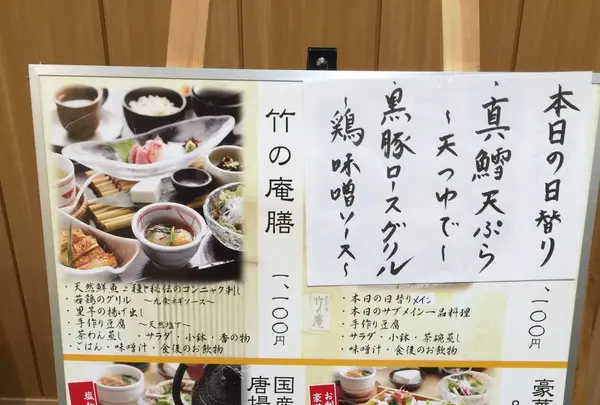 本日の日替り
・真鱈天ぷら
～天つゆで～
・黒豚ロースグリル
～鶏味噌ソース～
竹の庵膳
一、一〇〇円
・天然鮮魚二種と秘伝のコンニャク刺し
・若鶏のグリル ～九条ネギソース～
・里芋の揚げ出し
・手作り豆腐 ～天然塩で～
・茶わん蒸し ・サラダ・小鉢・香の物
・ごはん・味噌汁・食後のお飲物
一〇〇円
竹の庵
・本日の日替りメイン
・本日のサブメイン一品料理
・手作り豆腐
・サラダ・小鉢・茶碗蒸し
・ごはん・味噌汁・食後のお飲物
国産
唐揚
お刺
豪華
豪華